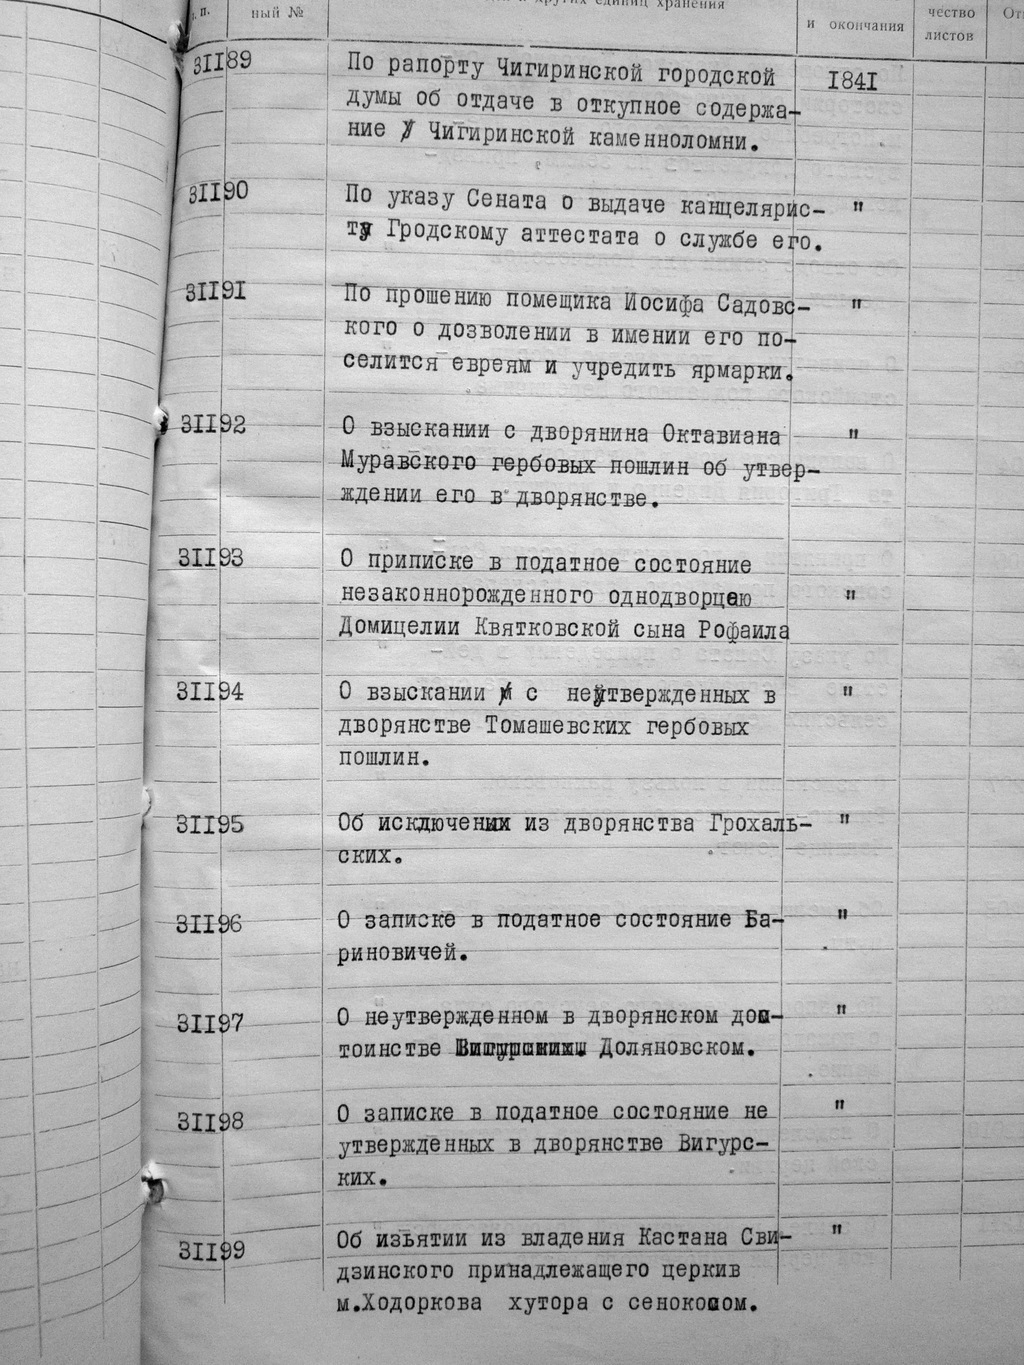 ный №
и других единиц хранения
и окончания
чество
листов
31189 По рапорту Чигиринской городской 1841
думы об отдаче в откупное содержа-
ние Чигиринской каменноломни.
31190 По указу Сената о выдаче канцелярис- "
ту Гродскому аттестата о службе его.
31191 По прошению помещика Иосифа Садовс- "
кого о дозволении в имении его по-
селится евреям и учредить ярмарки.
31192 О взыскании с дворянина Октавиана "
Муравского гербовых пошлин об утвер-
ждении его в дворянстве.
31193 О приписке в податное состояние
незаконнорожденного однодворцею "
Домицелии Квятковской сына Рофаила
31194 О взыскании с неутвержденных в "
дворянстве Томашевских гербовых
пошлин.
31195 Об исключении из дворянства Грохаль- "
ских.
31196 О записке в податное состояние Ба- "
риновичей.
31197 О неутвержденном в дворянском дос- "
тоинстве Доляновском.
31198 О записке в податное состояние не "
утвержденных в дворянстве Вигурс-
ких.
31199 Об изъятии из владения Кастана Сви- "
дзинского принадлежащего церкив
м.Ходоркова хутора с сенокосом.